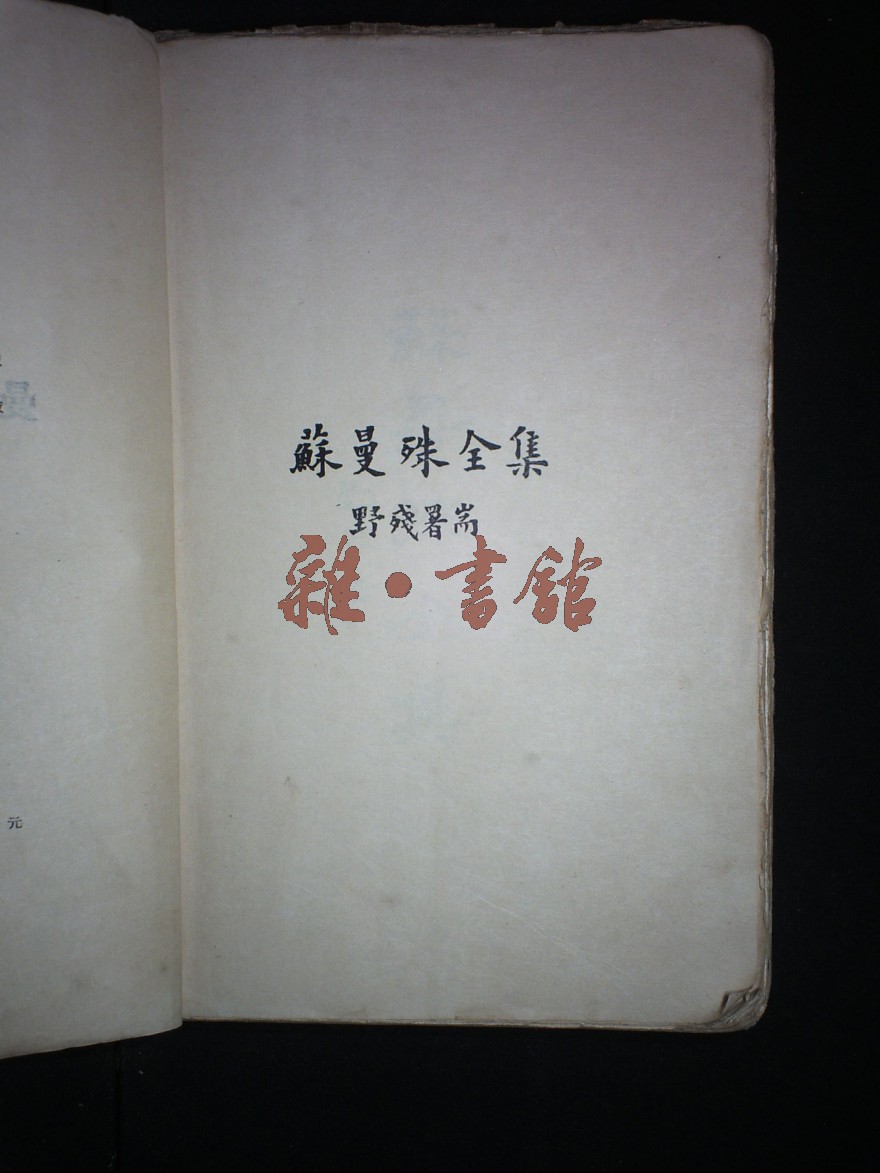 蘇曼殊全集
野殘署耑
雜•書館
元